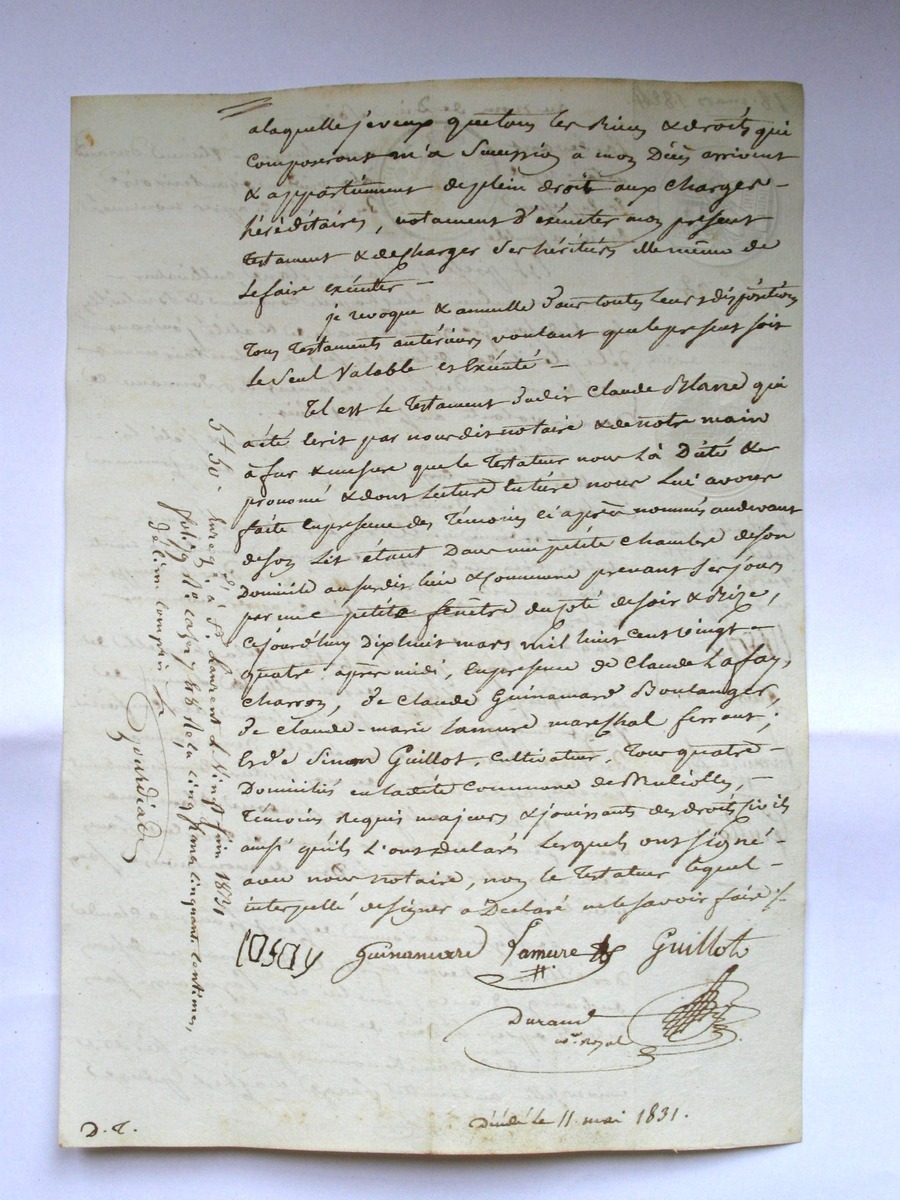 alaquelle je veux que tous les Biens & droits qui
composeront m'a Succession à mon Décès arrivent
& appartiennent de plein droit aux charges
héréditaires, notament d'éxécuter mon présent
Testament & de charger ses héritiers de
le faire éxécuter
je revoque & annulle dans toutes leurs dispositions
tous Testaments antérieurs voulant que le présent soit
le Seul Valable et Exécuté
Tel est le Testament dudit Claude qui
a été écrit par nous dit notaire & de notre main
à fur & mesure que le Testateur nous l'à Dicté &
prononcé & dont lecture entière nous lui avons
faite en présence des Témoins ci après nommés audevant
de son Lit étant Dans une petite chambre de son
Domicile au susdit lieu & Commune prenant ses jours
par une petite fenêtre du coté de soir & Bize,
cejourd'huy dix huit mars mil huit cent vingt
quatre après midi, en présence de Claude Lafay,
charron, de Claude Guinamard Boulanger,
de Claude-marie Lamure mareshal ferrant,
Et de Simon Guillot, cultivateur, Tous quatre
Domiciliés en ladite Commune de
Temoins Requis majeurs & jouissants des droits civils
ainsi qu'ils l'ont Déclarés Lesquels ont signé
avec nous notaire, non le Testateur lequel
interpellé de signer a Déclaré ne le savoir faire
lafay Guinamard Lamure Guillot
Durand
nre Royal
Décédé le 11. mai 1831.
D. T.
5f 50
Enregé. à St. Laurent le Vingt juin 1831
folio case Reçu cinq francs cinquante centimes,
décime compris